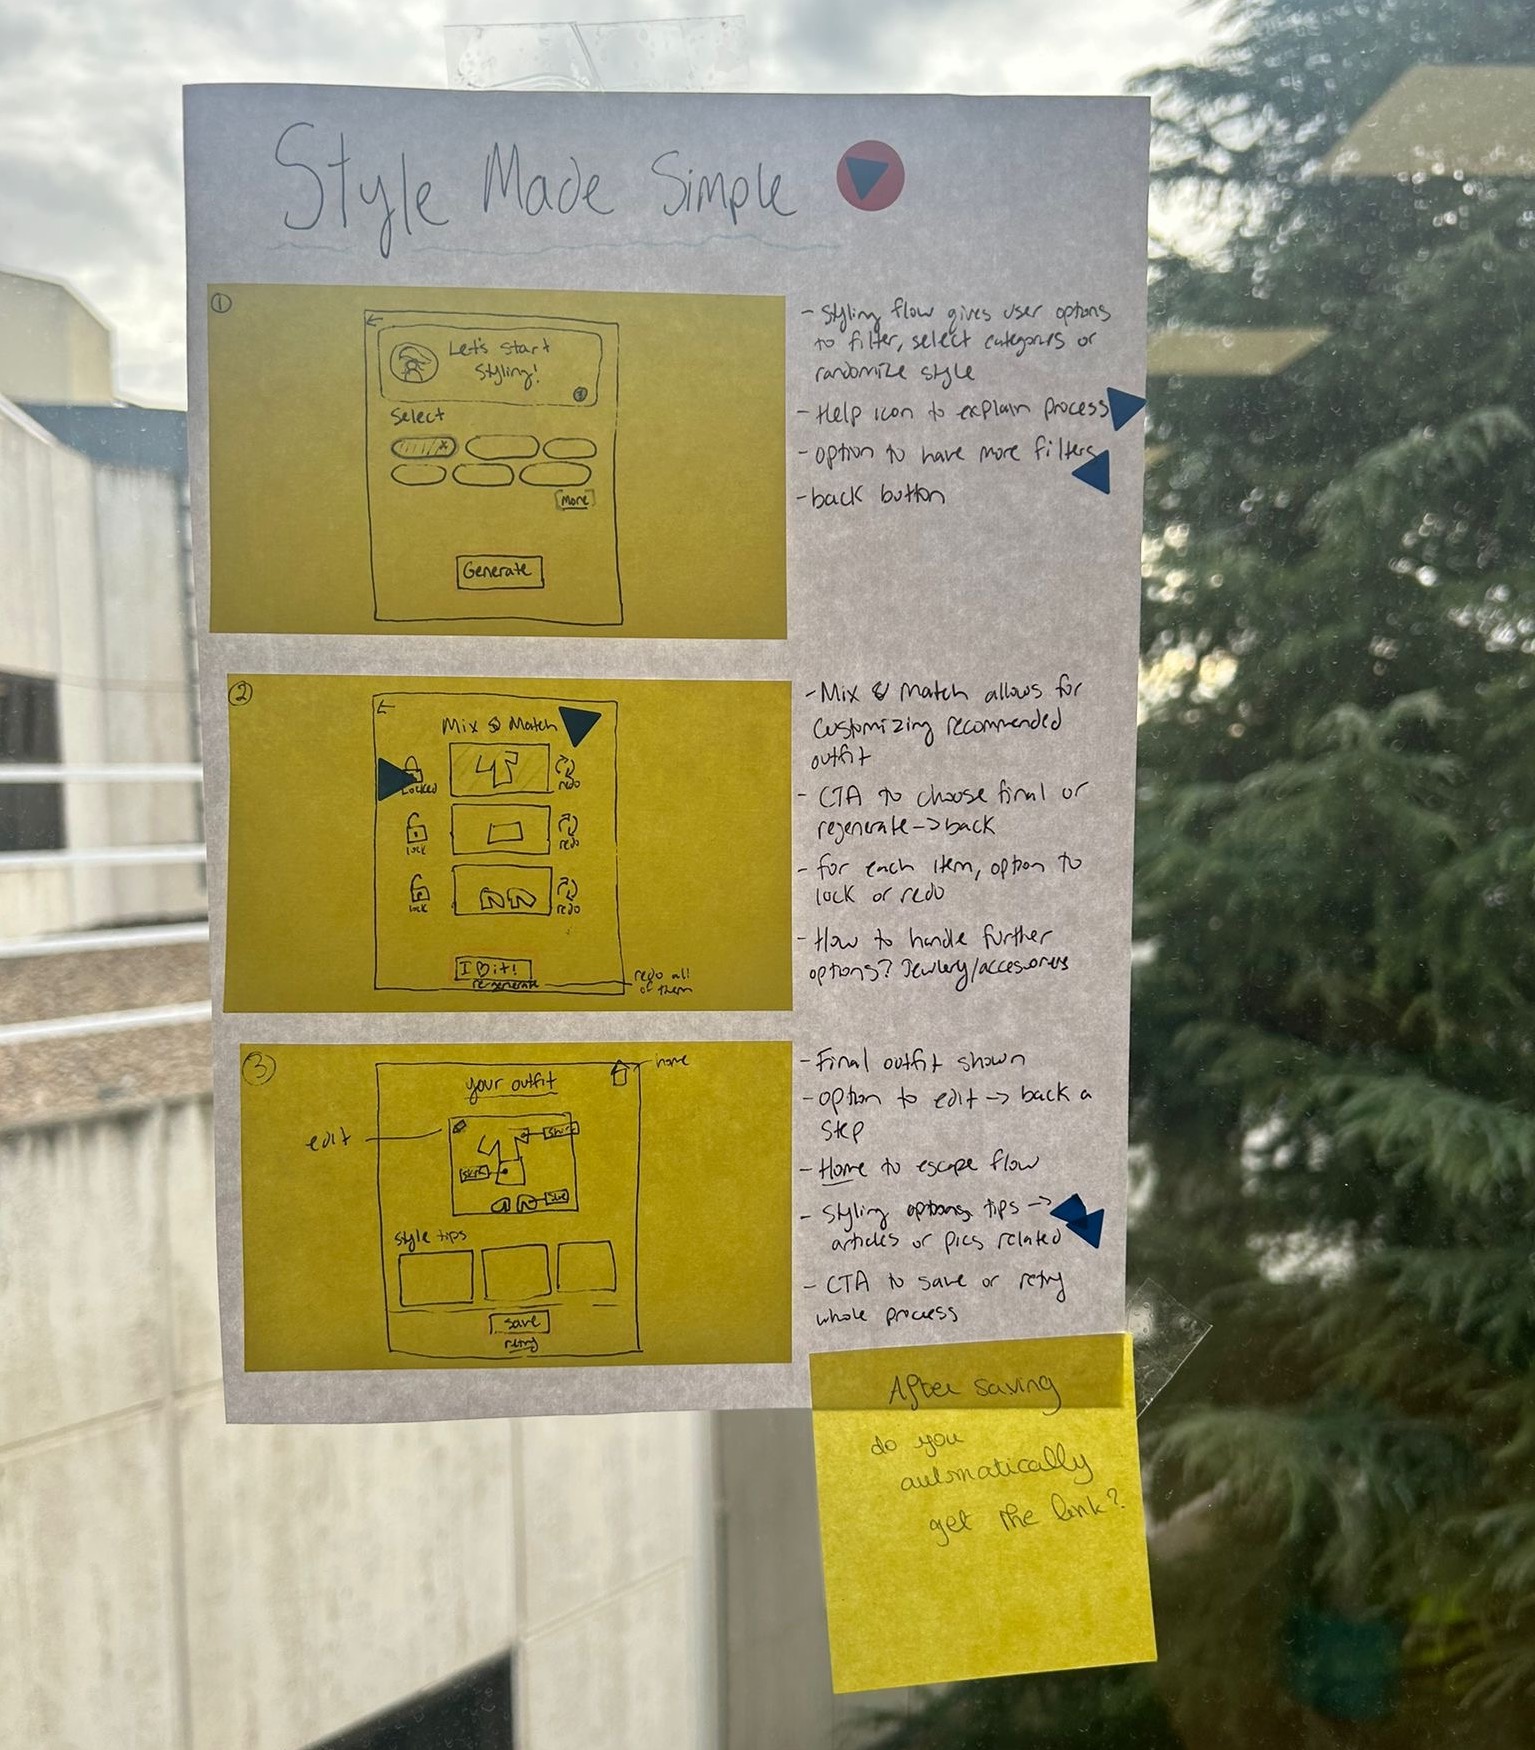 Style Made Simple
①
Let's start
Styling!
Select
More
Generate
- Styling flow gives user options
to filter, select categories or
randomize style
- Help icon to explain process
- option to have more filters
- back button
②
Mix & Match
Locked
redo
lock
redo
lock
redo
I ♡ it!
regenerate
redo all
of them
- Mix & Match allows for
customizing recommended
outfit
- CTA to choose final or
regenerate -> back
- for each item, option to
lock or redo
- How to handle further
options? Jewlery/accesories
③
home
your outfit
edit
skirt
Style tips
save
retry
- Final outfit shown
- option to edit -> back a
step
- Home to escape flow
- Styling options, tips ->
articles or pics related
- CTA to save or retry
whole process
After saving
do you
automatically
get the link?